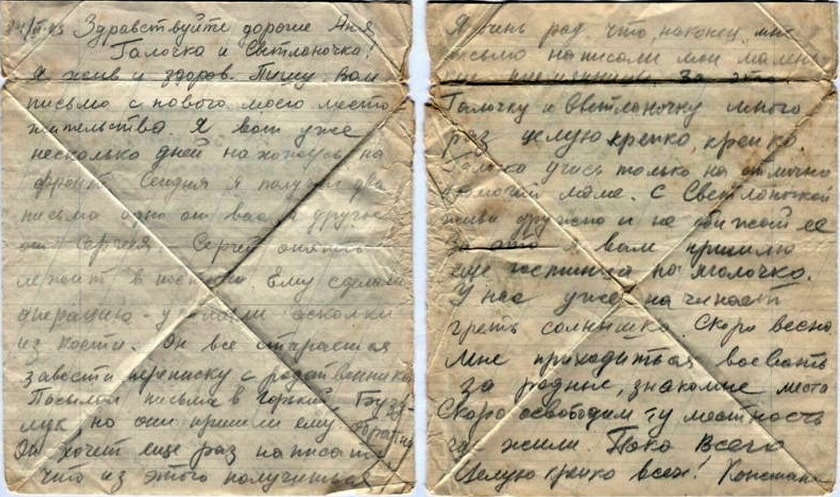 Здравствуйте дорогие Аня
Галочка и Светланочка!
Я жив и здоров. Пишу вам
письмо с нового моего место
жительства. Я вот уже
несколько дней нахожусь на
фронте. Сегодня я получил два
письма одно от вас а другое
от Сергея Сергей опять
лежит в госпитале. Ему сделали
операцию - удалили осколки
из кости. Он все старается
завести переписку с родственника
Посылал письма в Горький, Бузу
лук но они пришли ему обратно
Он хочет еще раз написать
что из этого получиться
Я очень рад что, наконец, мне
письмо написали мои мален
за это
Галочку и Светланочку много
раз целую крепко, крепко.
Галочка учись только на отлично
помогай маме. С Светланочкой
живи дружно и не обижай ее
за это я вам пришлю
еще гостинца по
У нас уже начинает
греть солнышко. Скоро весна
Мне приходиться воевать
за родные, знакомые места
Скоро освободим ту местность
где жили. Пока Всего
Целую крепко всех! Констан